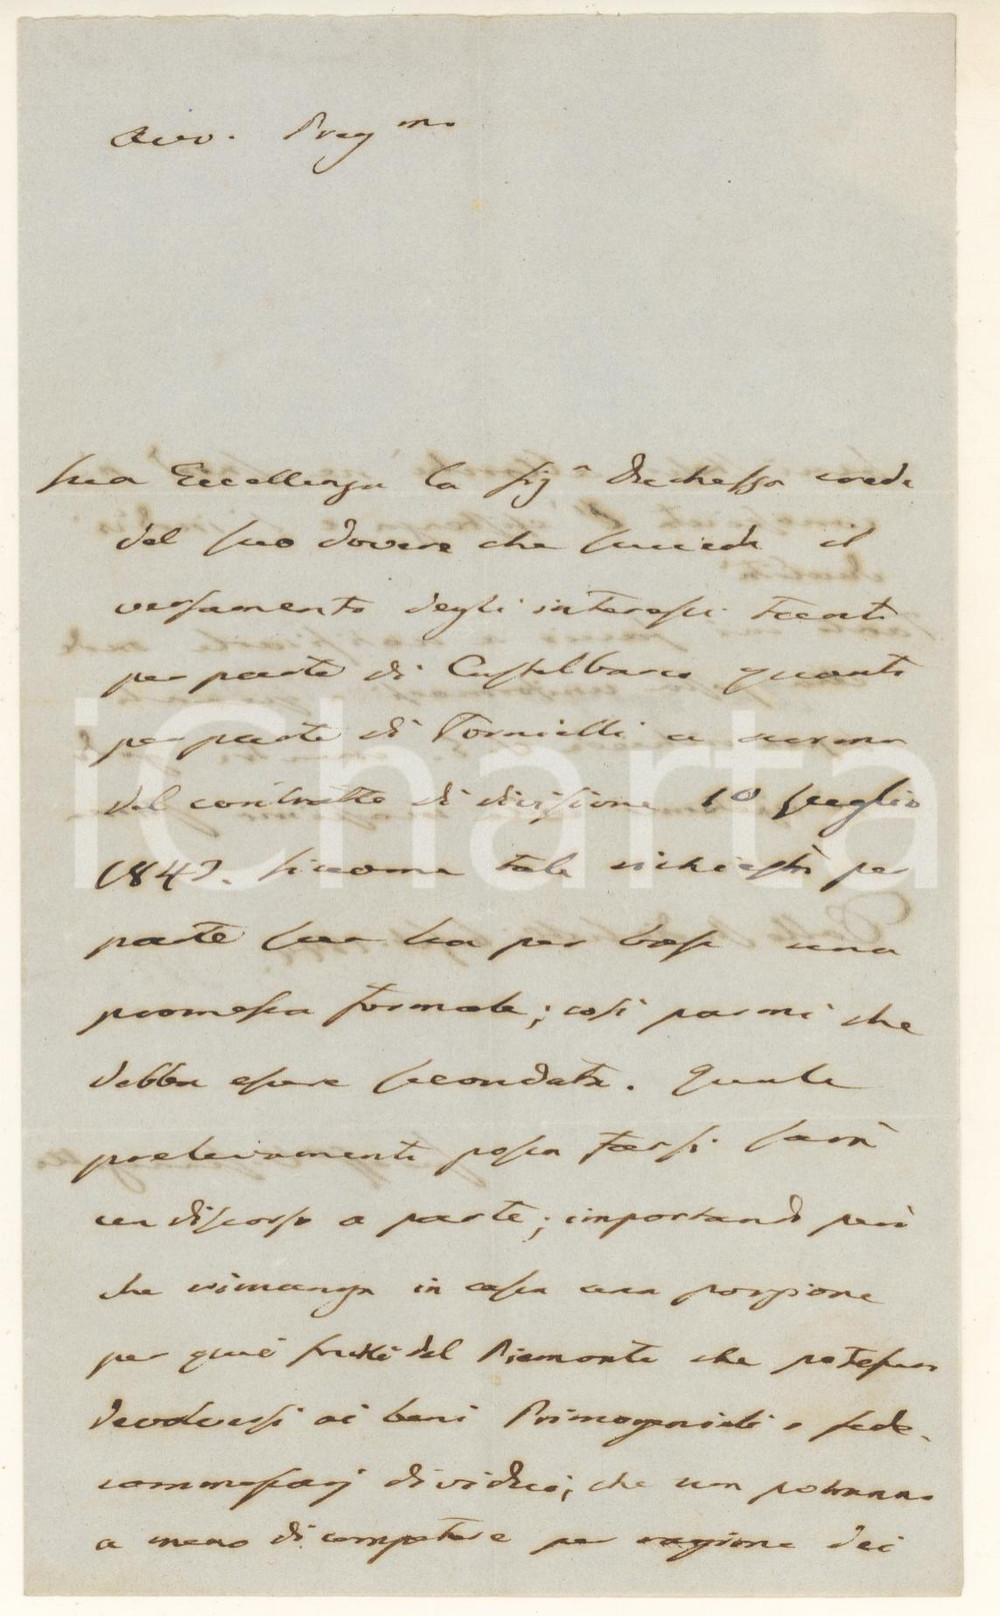 Avv. Preg mo
Sua Eccellenza la Sig a Duchessa crede
del suo dovere che succeda il
versamento degli interessi tanti
per parte di Castelbarco quanti
per parte di Tornielli a norma
del contratto di divisione 10 Luglio
1847. Siccome tale richiesta per
parte sua ha per base una
promessa formale; così parmi che
debba essere secondata. Quale
prelevamenti possa farsi sarà
un discorso a parte; importando però
che rimanga in cassa una porzione
per quei frutti del Piemonte che potesser
devolversi ai beni Primogeniali o fede-
commessarj dividui; che non potranno
a meno di competere per ragione dei
iCharta